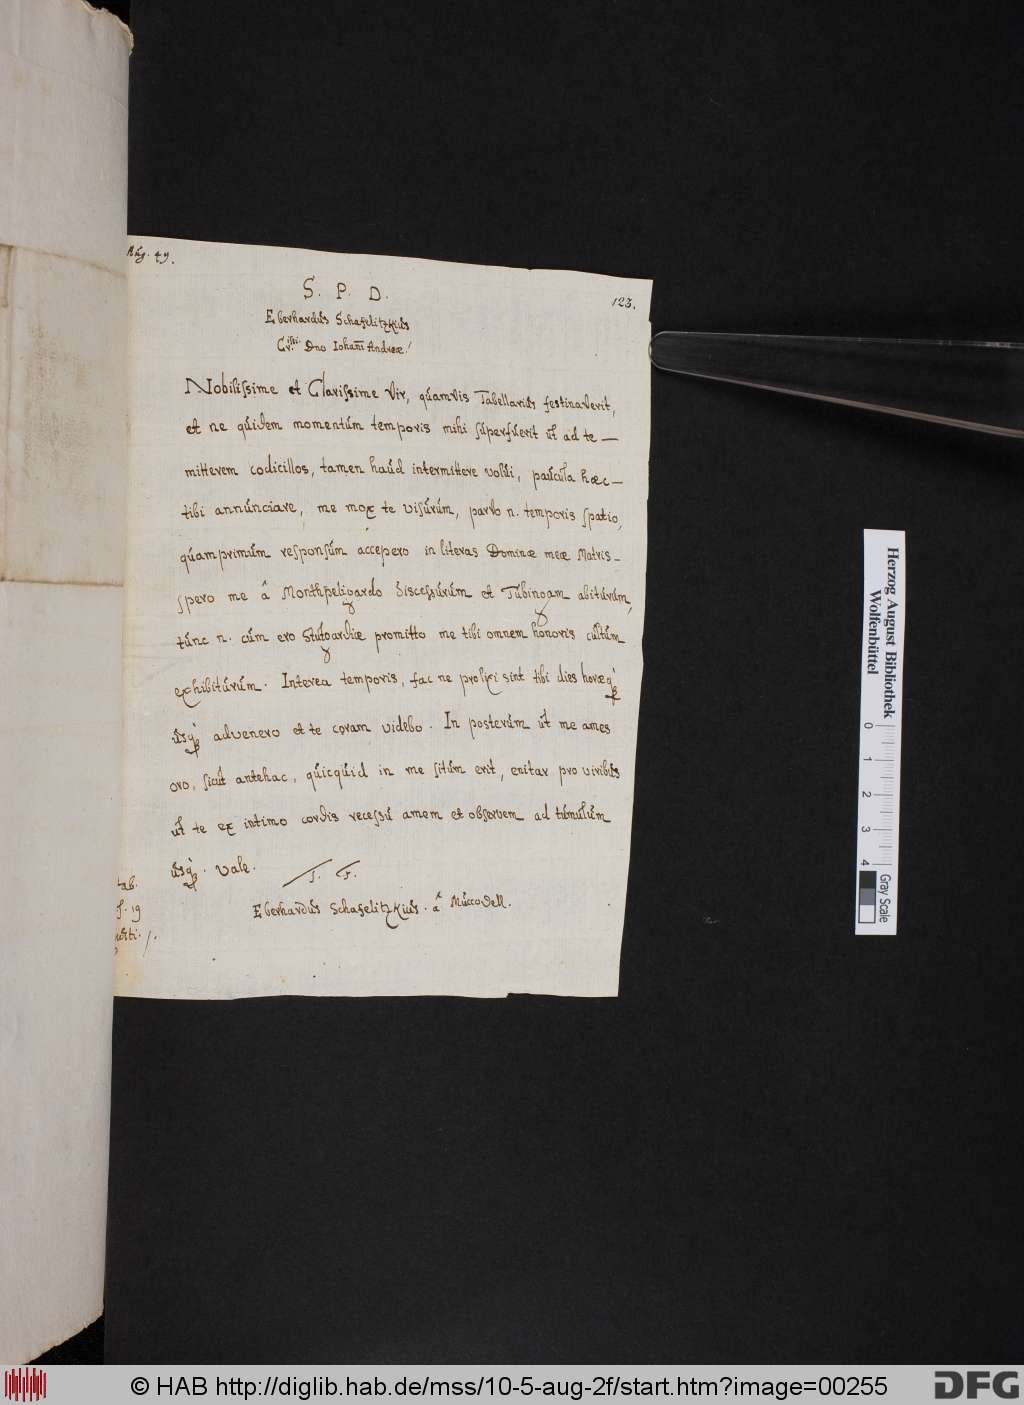 Aug. 49.
123.
S. P. D.
Eberhardus Schafelitzkius
Cl.mi Dno Iohañi Andreæ!
Nobilissime et Clarissime Vir, quamvis Tabellarius festinaverit,
et ne quidem momentum temporis mihi superfuerit ut ad te —
mitterem codicillos, tamen haud intermittere volui, paucula hæc —
tibi annunciare, me mox te visurum, parvo n. temporis spatio,
quamprimum responsum accepero in literas Dominæ meæ Matris -
spero me â Monthpeligardo discessurum et Tubingam abiturum,
tunc n. cum ero Stutgardiæ promitto me tibi omnem honoris cultum
exhibiturum. Interea temporis, fac ne prolixi sint tibi dies horæq;
usq; advenero et te coram videbo. In posterum ut me ames
oro, sicut antehac, quicquid in me situm erit, enitar pro viribus
ut te ex intimo cordis recessu amem et observem ad tumulum
usq;. Vale.
Eberhardus Schafelitzkius. â Muccodell.
tab.
f. 19
Herzog August Bibliothek
Wolfenbüttel
0 1 2 3 4
Gray Scale
© HAB http://diglib.hab.de/mss/10-5-aug-2f/start.htm?image=00255
DFG